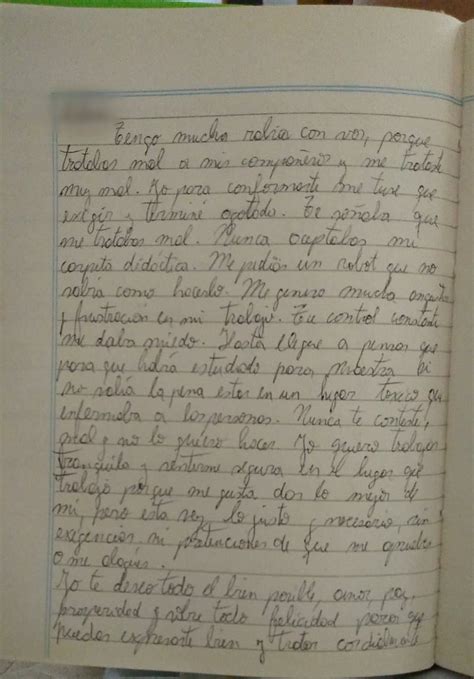 Tengo mucha rabia con vos, porque
tratabas mal a mis compañeros y me trataste
muy mal. Yo para conformarte me tuve que
exigir y terminé agotada. Te señalaba que
me tratabas mal. Nunca aceptabas mi
carpeta didáctica. Me pedías un robot que no
sabía como hacerlo. Me generó mucha angustia
y frustración en mi trabajo. Tu control constante
me daba miedo. Hasta llegué a pensar que
para que había estudiado para maestra si
no valía la pena estar en un lugar toxico que
enfermaba a las personas. Nunca te contesté,
mal y no lo quiero hacer. Yo quiero trabajar
tranquila y sentirme segura en el lugar que
trabajo porque me gusta dar lo mejor de
mí, pero esta vez lo justo y necesario, sin
exigencias ni pretenciones de que me apruebes
o me elogies.
Yo te deseo todo el bien posible, amor paz,
prosperidad y sobre todo felicidad para que
puedas expresarte bien y tratar cordialmente